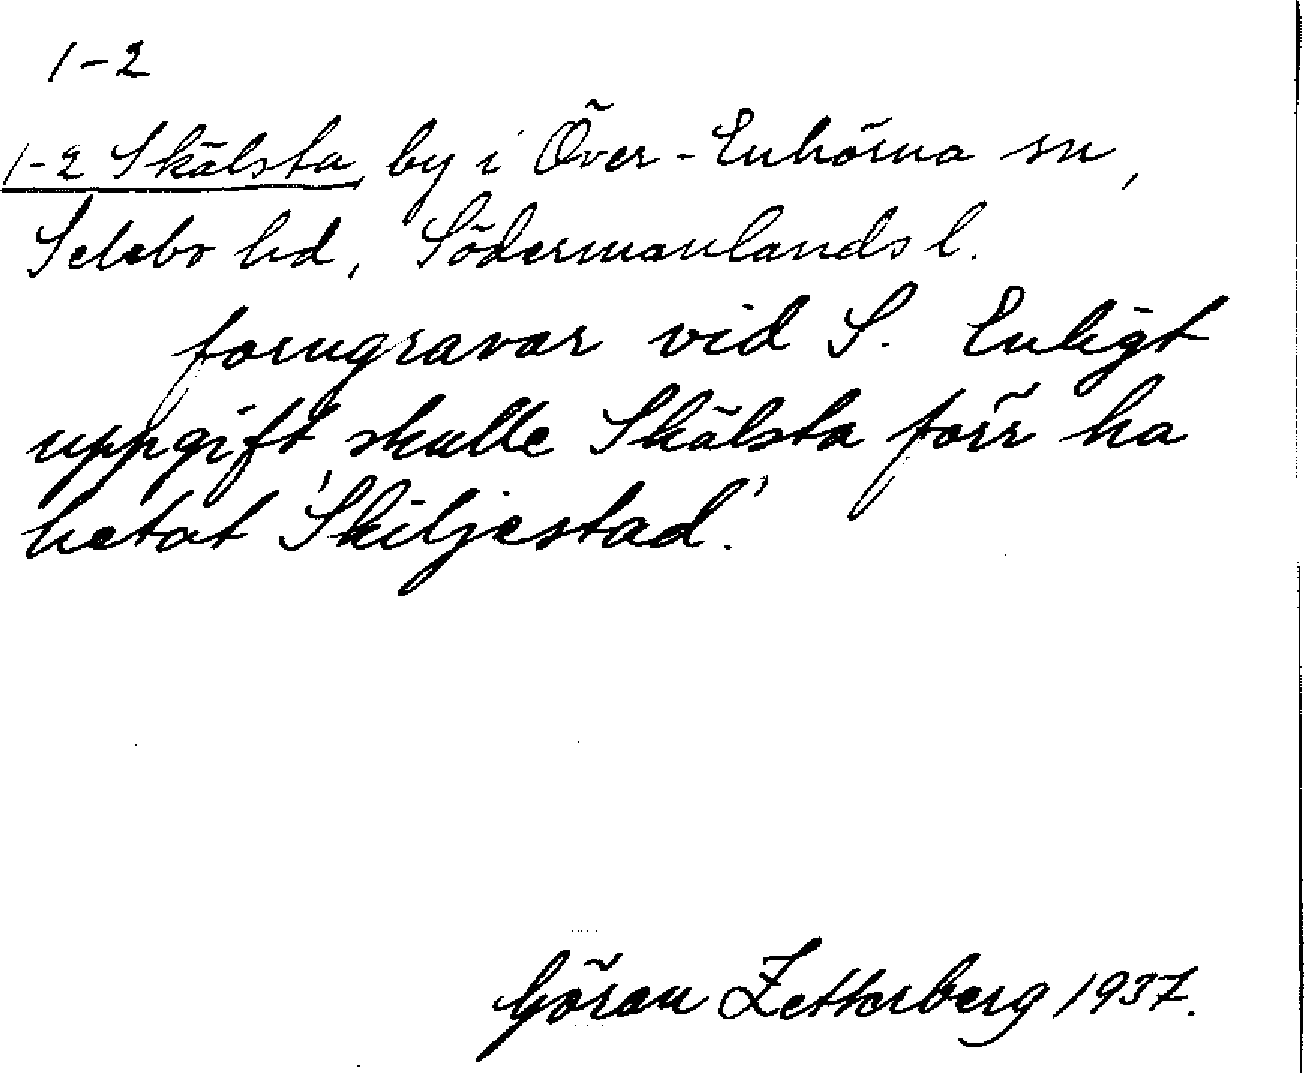 1-2
1-2 Skälsta, by i Över-Enhörna sn,
Selebo hd, Södermanlands l.
forngravar vid S. Enligt
uppgift skulle Skälsta förr ha
hetat 'Skiljestad'.
Göran Zetterberg 1937.